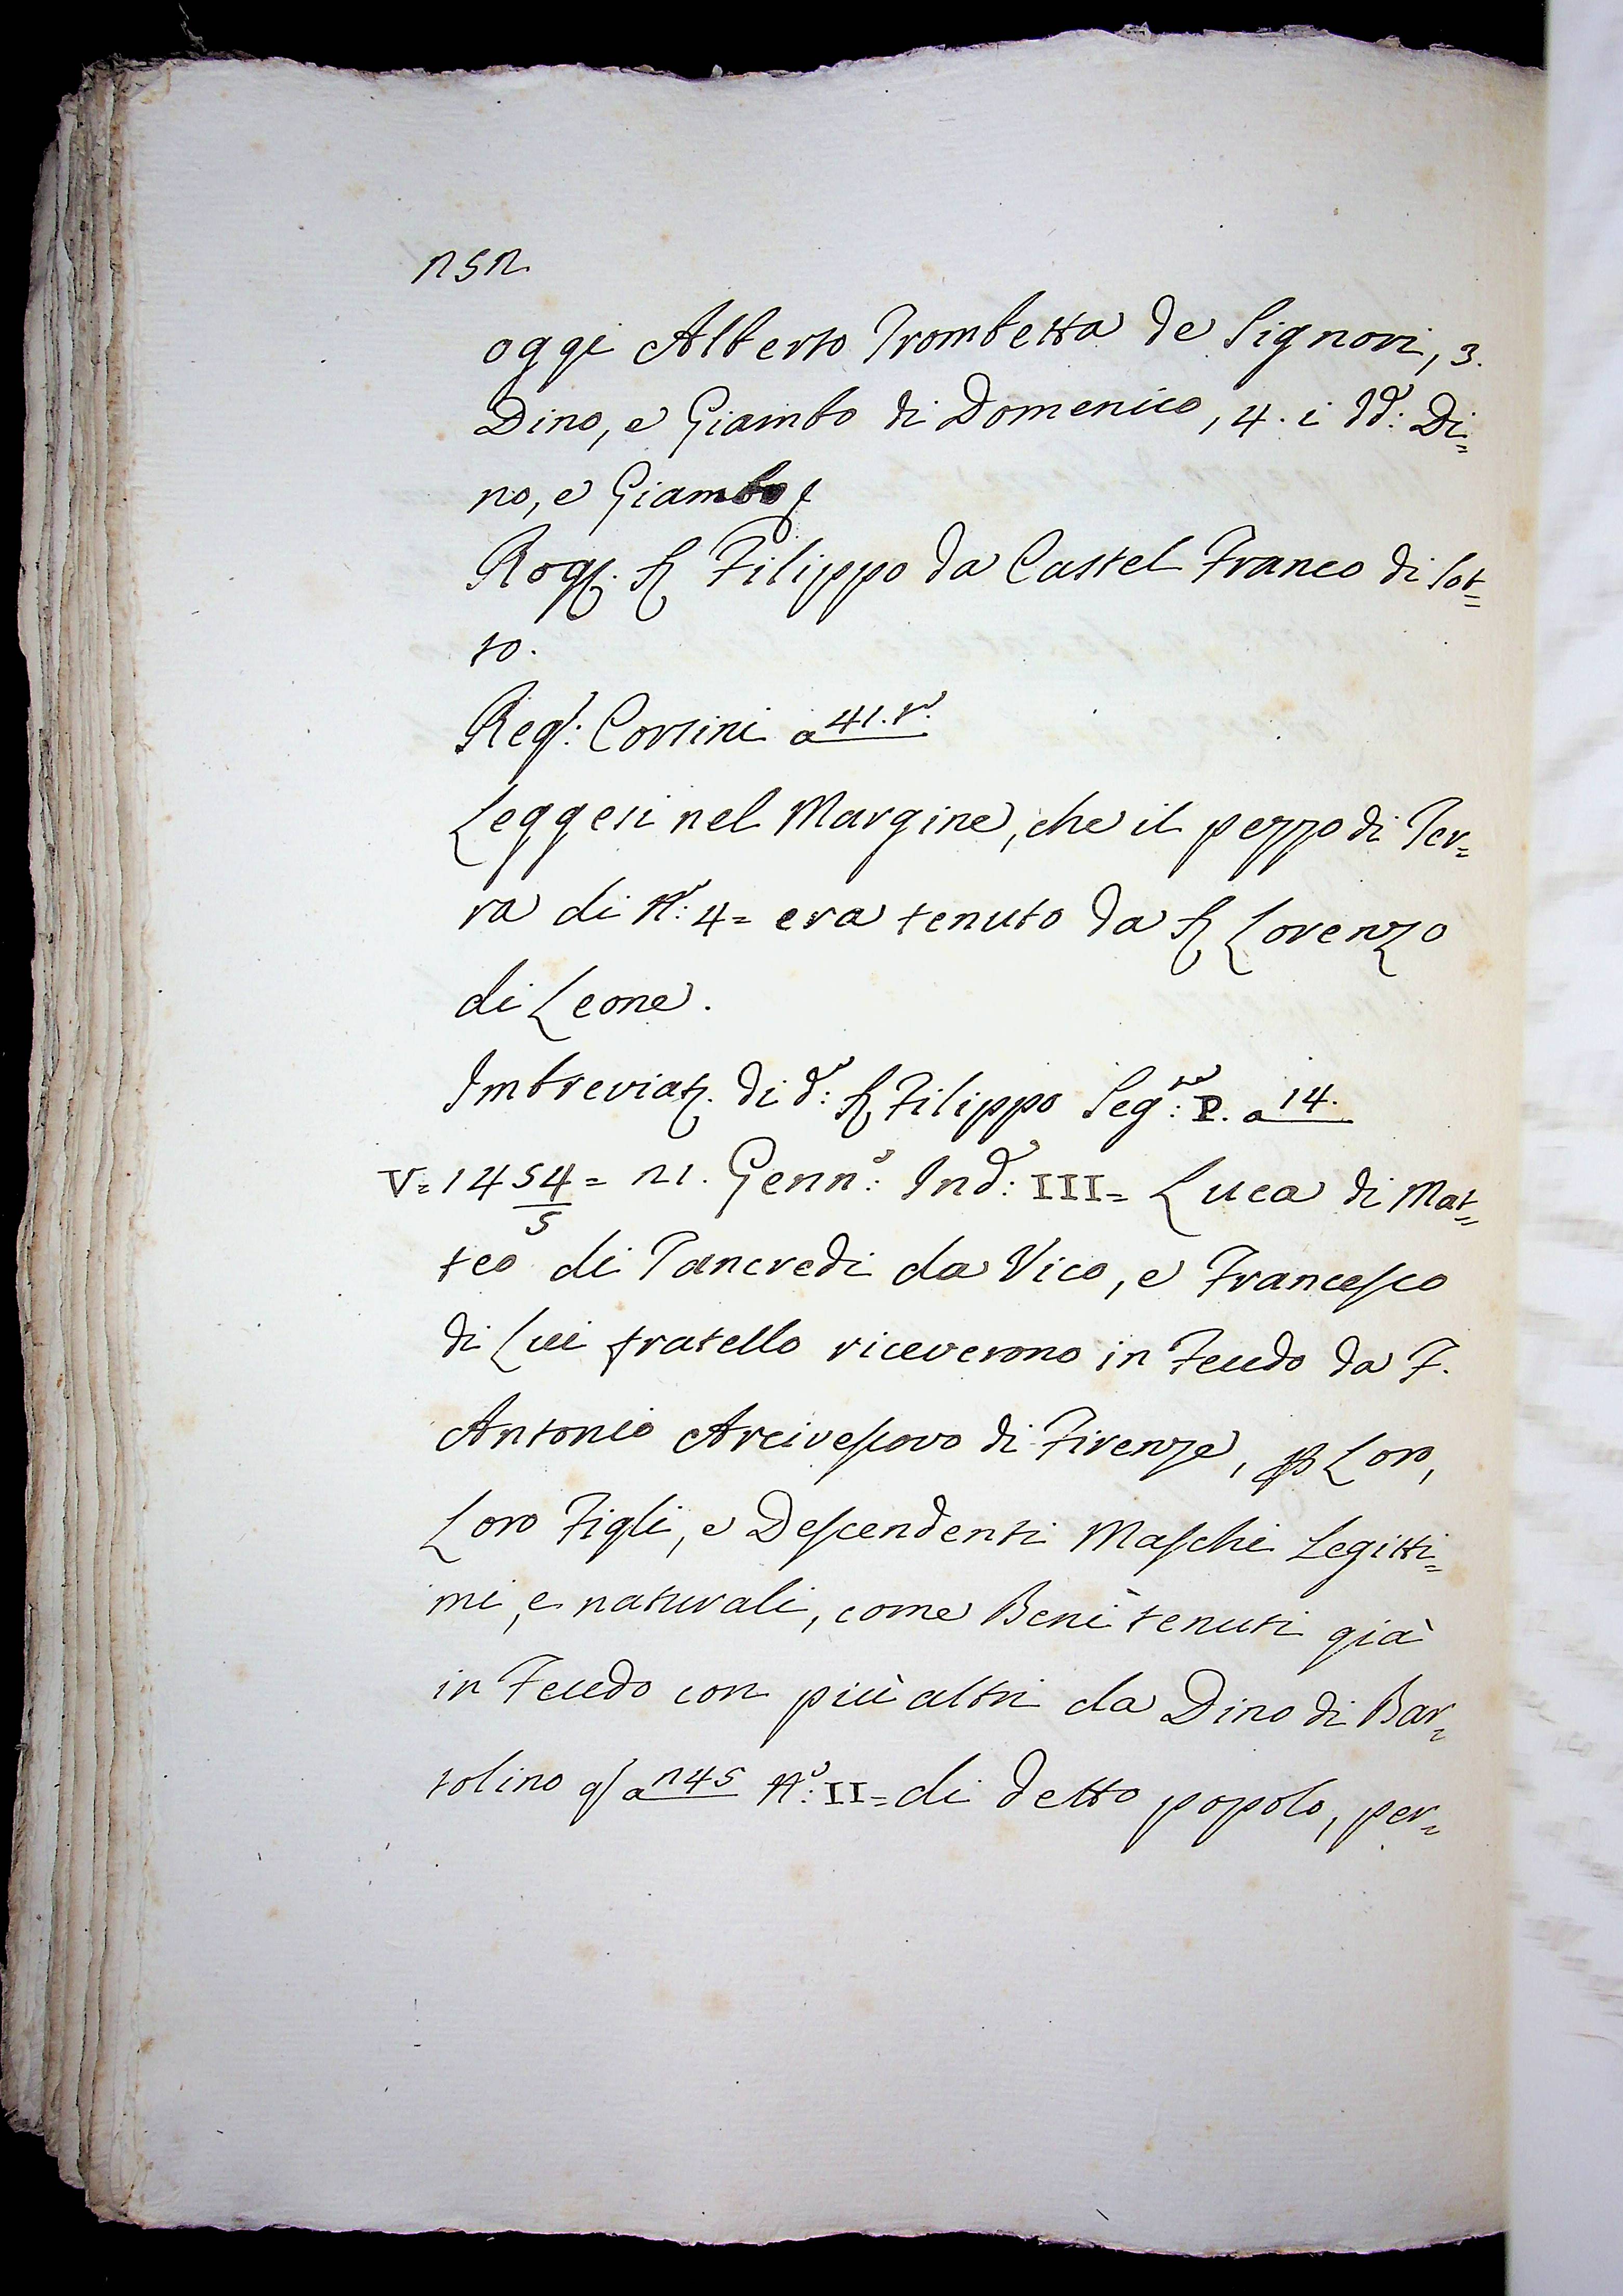 252
oggi Alberto Trombetta de Signori, 3.
Dino, e Giambo di Domenico, 4. i dd: Di=
no, e Giambo
Rog. Filippo da Castel Franco di Sot=
to.
Reg: Corsini a 41. v.
Leggesi nel Margine, che il pezzo di Ter=
ra di N: 4= era tenuto da S Lorenzo
di Leone.
Imbreviat. di d: S Filippo Seg: P. a 14.
V=1454/5= 21. Genn: Ind: III= Luca di Mat=
teo di Tancredi da Vico, e Francesco
di Lui fratello riceverono in Feudo da F.
Antonio Arcivescovo di Firenze, p Loro,
Loro Figli, e Descendenti Maschi Legitti=
mi, e naturali, come Beni tenuti già
in Feudo con più altri da Dino di Bar=
tolino q a 245 N: II= di detto popolo, per=